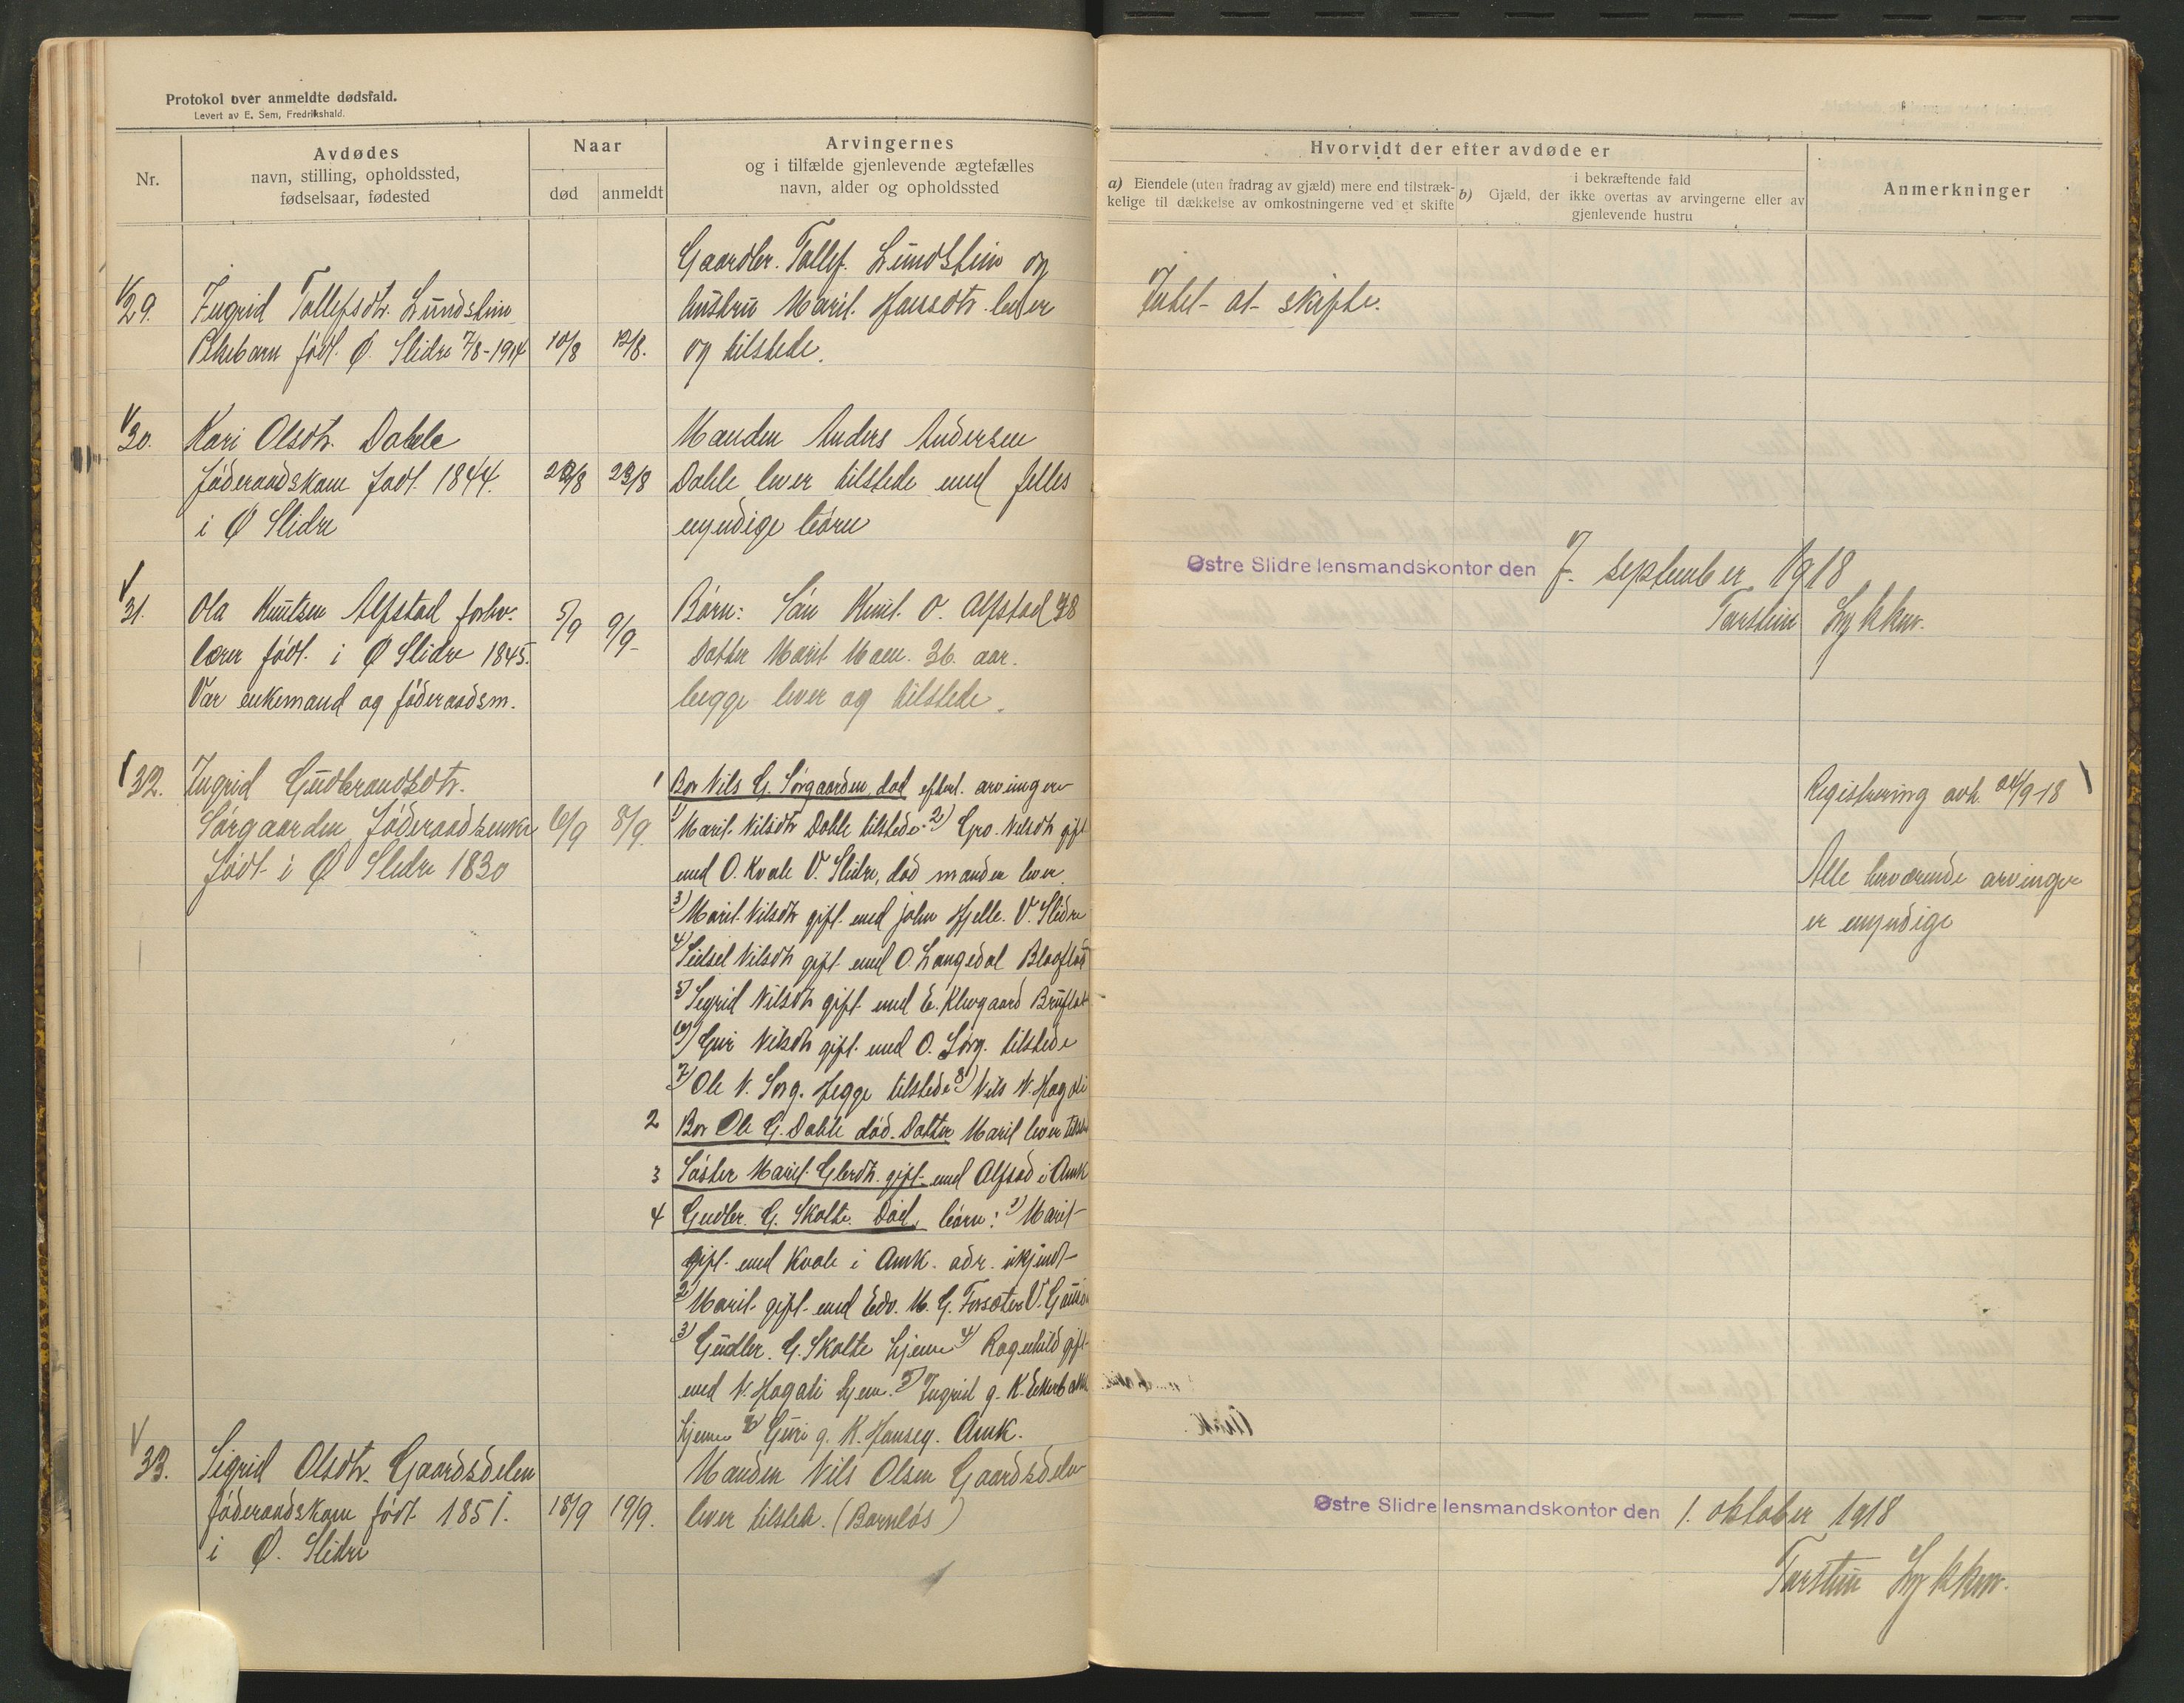 Protokol over anmeldte dødsfald.
Levert av E. Sem, Fredrikshald.
Nr.
Avdødes
navn, stilling, opholdssted,
fødselsaar, fødested
Naar
død
anmeldt
Arvingernes
og i tilfælde gjenlevende ægtefælles
navn, alder og opholdssted
Hvorvidt der efter avdøde er
a) Eiendele (uten fradrag av gjæld) mere end tilstræk-
kelige til dækkelse av omkostningerne ved et skifte
b) Gjæld, der i bekræftende fald
ikke overtas av arvingerne eller av
gjenlevende hustru
Anmerkninger
29.
Ingrid Tollefsdtr. Lundstein
Pikebarn født Ø. Slidre 7/8-1914
10/8
12/8.
Gaardbr. Tollef. Lundstein og
hustru Marit Hansdtr. lever
og tilstede.
Intet at skifte.
30.
Kari Olsdtr. Dahle
føderaadskone født 1844.
i Ø Slidre
23/8
Manden Anders Andersen
Dahle lever tilstede med felles
myndige børn
Østre Slidre lensmandskontor den 7. september 1918
Torstein Lykken.
31.
Ola Knutsen Alfstad forhv.
lærer født i Ø Slidre 1845.
Var enkemand og føderaadsm.
5/9
9/9
Børn: Søn Knut O. Alfstad 38
Datter Marit Moen 36 aar.
begge lever og tilstede.
32.
Ingrid Gudbrandsdtr.
Sørgaarden føderaadsenke
født i Ø Slidre 1830
6/9
8/9.
1 Bror Nils G. Sørgaarden, død efterl. arvinger
1) Marit Nilsdtr Dahle tilstede. 2) Gro Nilsdtr gift
med O. Kvale V. Slidre, død manden lever.
3) Marit Nilsdtr gift med John Hjelle. V. Slidre
4) Sidsel Nilsdtr gift med O. Langedal Blaaflat
5) Sigrid Nilsdtr gift med E. Klevgaard Bruflat
6) Guri Nilsdtr gift med O. Sørg. tilstede
7) Ole N. Sørg. Hegge tilstede 8) Nils N. Hagali
2 Bror Ole G. Dahle død. Datter Marit lever tilst.
3 Søster Marit Gbrdtr. gift med Alfstad i Amk
4 Gudbr. G. Skolte. Død, børn: 1) Marit
gift med Kvale i Amk. adr. ukjendt
2) Marit gift med Edv. M. G. V.
3) Gudbr. G. Skolte hjemme 4) Ragnhild gift
med N. Hagali hjem. 5) Ingrid g. K.
hjemme 6) Guri g. K. Amk.
Registrering avh. 24/9-18
Alle herværende arvinger
er myndige
33.
Sigrid Olsdtr. Gaardsdelen
føderaadskone født 1851.
i Ø. Slidre
18/9
19/9.
Manden Nils Olsen Gaardsdelen
lever tilstede. (Barnløs)
Østre Slidre lensmandskontor den 1. oktober 1918
Torstein Lykken.